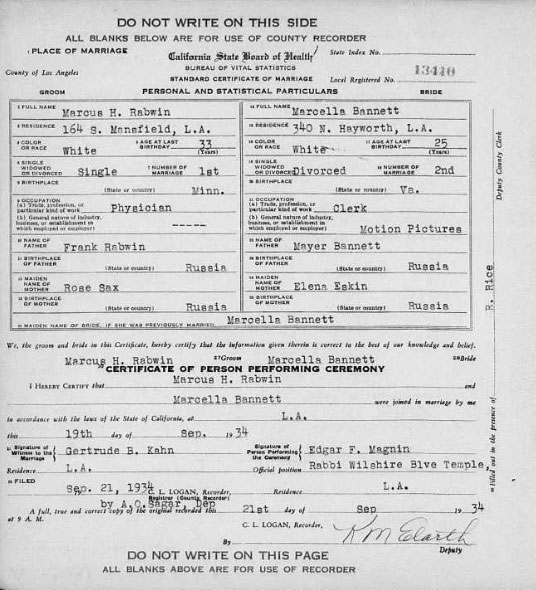 DO NOT WRITE ON THIS SIDE
ALL BLANKS BELOW ARE FOR USE OF COUNTY RECORDER
1 PLACE OF MARRIAGE
California State Board of Health
State Index No.
BUREAU OF VITAL STATISTICS
County of Los Angeles
STANDARD CERTIFICATE OF MARRIAGE
Local Registered No. 13410
GROOM PERSONAL AND STATISTICAL PARTICULARS BRIDE
FULL NAME Marcus H. Rabwin FULL NAME Marcella Bannett
RESIDENCE 164 S. Mansfield, L.A. RESIDENCE 340 N. Hayworth, L.A.
COLOR OR RACE White AGE AT LAST BIRTHDAY 33 (Years) COLOR OR RACE White AGE AT LAST BIRTHDAY 25 (Years)
SINGLE WIDOWED OR DIVORCED Single NUMBER OF MARRIAGE 1st SINGLE WIDOWED OR DIVORCED Divorced NUMBER OF MARRIAGE 2nd
BIRTHPLACE (State or country) Minn. BIRTHPLACE (State or country) Va.
OCCUPATION OCCUPATION
(a) Trade, profession, or particular kind of work Physician (a) Trade, profession, or particular kind of work Clerk
(b) General nature of industry, business, or establishment in which employed or employer) ----- (b) General nature of industry, business, or establishment in which employed or employer) Motion Pictures
NAME OF FATHER Frank Rabwin NAME OF FATHER Mayer Bannett
BIRTHPLACE OF FATHER (State or country) Russia BIRTHPLACE OF FATHER (State or country) Russia
MAIDEN NAME OF MOTHER Rose Sax MAIDEN NAME OF MOTHER Elena Eskin
BIRTHPLACE OF MOTHER (State or country) Russia BIRTHPLACE OF MOTHER (State or country) Russia
MAIDEN NAME OF BRIDE, IF SHE WAS PREVIOUSLY MARRIED Marcella Bannett
We, the groom and bride in this Certificate, hereby certify that the information given therein is correct to the best of our knowledge and belief.
Marcus H. Rabwin 27 Groom Marcella Bannett 28 Bride
CERTIFICATE OF PERSON PERFORMING CEREMONY
I HEREBY CERTIFY that Marcus H. Rabwin and
Marcella Bannett were joined in marriage by me
in accordance with the laws of the State of California, at L.A.
this 19th day of Sep. 1934
Signature of Witness to the Marriage Gertrude B. Kahn Signature of Person Performing the Ceremony Edgar F. Magnin
Residence L.A. Official position Rabbi Wilshire Blve Temple,
FILED Sep. 21, 1934 C. L. LOGAN, Recorder, Residence L.A.
Registrar (County Recorder)
by A.O.Sagar, Dep
A full, true and correct copy of the original recorded this 21st day of Sep 1934
at 9 A. M. C. L. LOGAN, Recorder,
By
Deputy
DO NOT WRITE ON THIS PAGE
ALL BLANKS ABOVE ARE FOR USE OF RECORDER
Filled out in the presence of R. Rice Deputy County Clerk